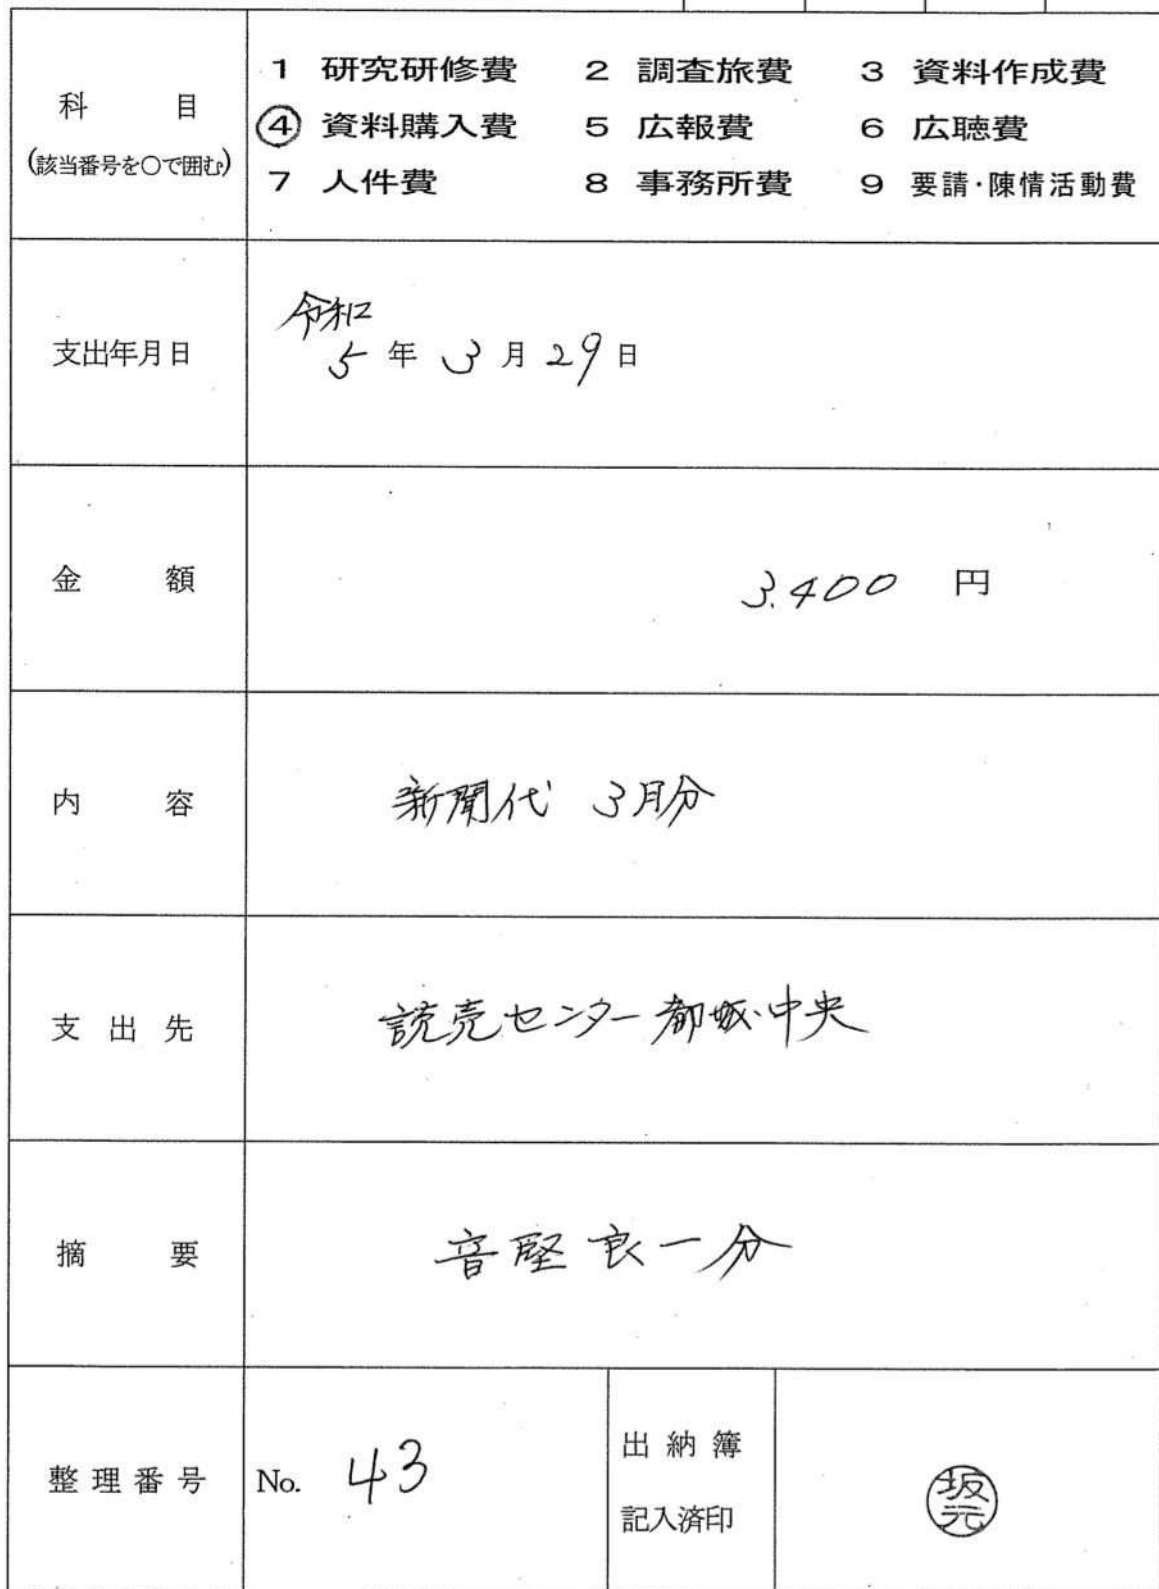 科 目
(該当番号を○で囲む)
1 研究研修費 2 調査旅費 3 資料作成費
④ 資料購入費 5 広報費 6 広聴費
7 人件費 8 事務所費 9 要請・陳情活動費
支出年月日
令和
5 年 3 月 29 日
金 額
3.400 円
内 容
新聞代 3月分
支 出 先
読売センター都城・中央
摘 要
音堅良一分
整 理 番 号
No. 43
出 納 簿
記入済印
坂元